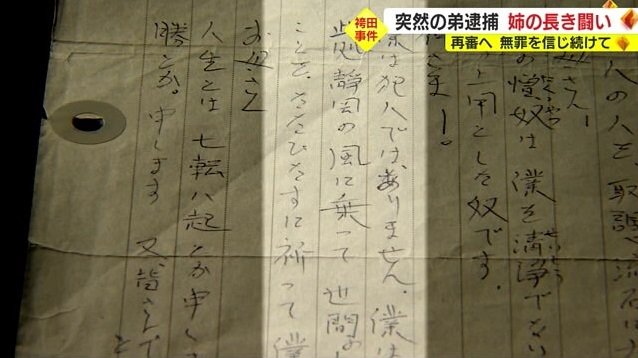 袴田
事件
突然の弟逮捕 姉の長き闘い
再審へ 無罪を信じ続けて
さん!
の憤奴は 僕を清浄でない
と同じした奴です。
さま!。
僕は犯人では、ありません。僕は
此処静岡の風に乗って 世間の
ことを、ただひたすに祈って 僕
お母さん
人生とは 七転八起とか申し
勝とか。申します 又、皆さんで
と